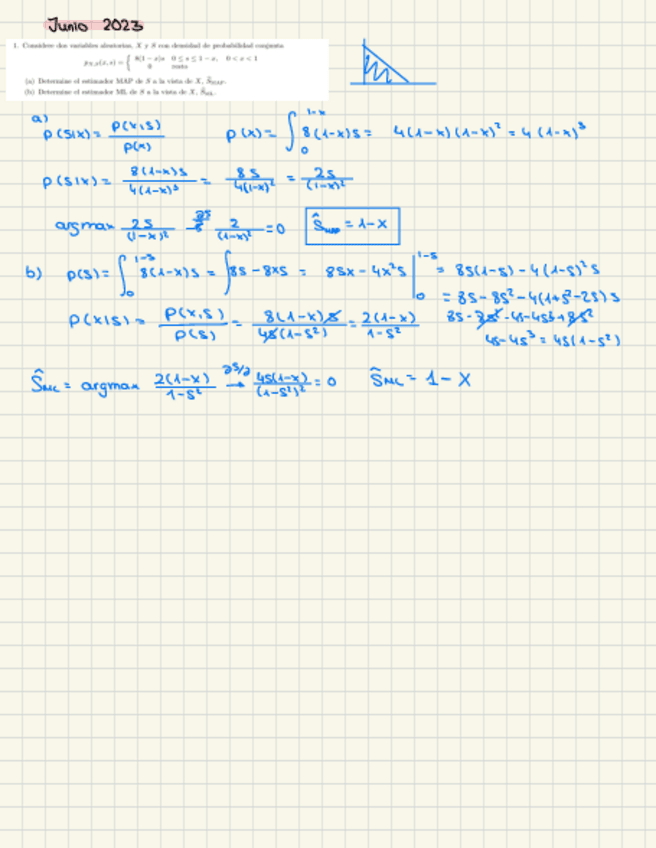 Junio 2023
1. Considere dos variables aleatorias, X y S con densidad de probabilidad conjunta
p_{X,S}(x,s) = { 8(1-x)s 0 ≤ s ≤ 1-x, 0 < x < 1
0 resto
(a) Determine el estimador MAP de S a la vista de X, Ŝ_MAP.
(b) Determine el estimador ML de S a la vista de X, Ŝ_ML.
a)
p(s|x) = p(x,s) / p(x) p(x) = ∫_0^{1-x} 8(1-x)s = 4(1-x)(1-x)² = 4(1-x)³
p(s|x) = 8(1-x)s / 4(1-x)³ = 8s / 4(1-x)² = 2s / (1-x)²
argmax 2s / (1-x)² 2 / (1-x)² = 0 Ŝ_MAP = 1-x
b) p(s) = ∫_0^{1-s} 8(1-x)s = ∫ 8s - 8xs = 8sx - 4x²s |_0^{1-s} = 8s(1-s) - 4(1-s)²s
= 8s - 8s² - 4(1+s²-2s)s
p(x|s) = p(x,s) / p(s) = 8(1-x)s / 4s(1-s²) = 2(1-x) / 1-s² 8s - 8s² - 4s - 4s³ + 8s²
4s - 4s³ = 4s(1-s²)
Ŝ_ML = argmax 2(1-x) / 1-s² → 4s(1-x) / (1-s²)² = 0 Ŝ_ML = 1-x